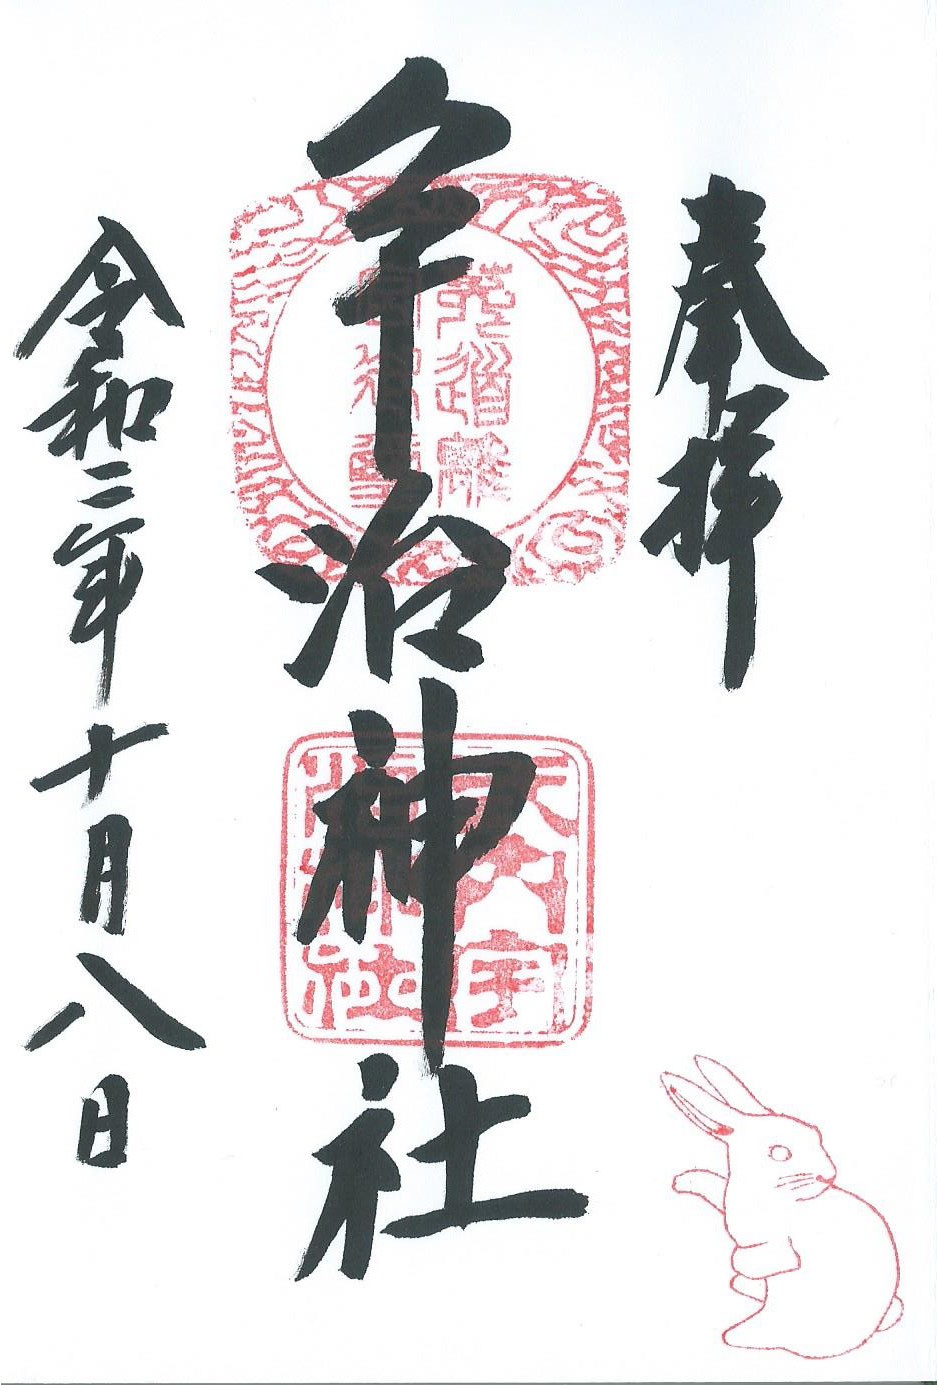 奉拝
宇治神社
令和二年十月八日
菟道離